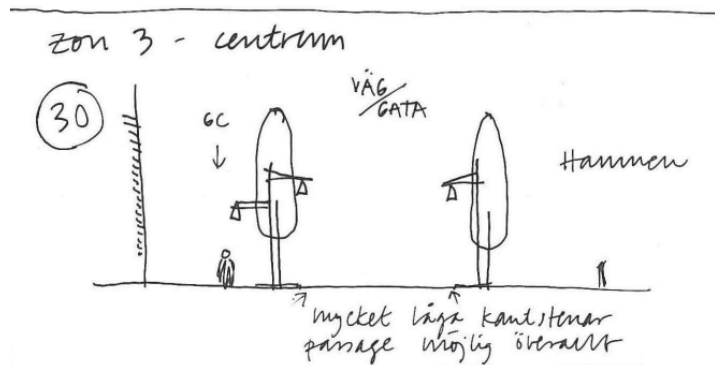 zon 3 - centrum
30
VÄG/
GATA
GC
Hamnen
mycket låga kantstenar
passage möjlig överallt